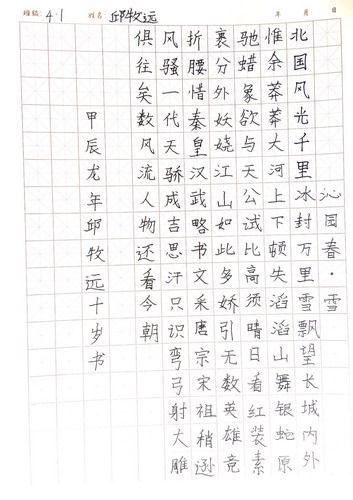 班级: 4.1 姓名 邱牧远 年 月 日
沁园春·雪
北国风光千里冰封万里雪飘望长城内外
惟余莽莽大河上下顿失滔滔山舞银蛇原
驰蜡象欲与天公试比高须晴日看红装素
裹分外妖娆江山如此多娇引无数英雄竞
折腰惜秦皇汉武略书文采唐宗宋祖稍逊
风骚一代天骄成吉思汗只识弯弓射大雕
俱往矣数风流人物还看今朝
甲辰龙年邱牧远十岁书